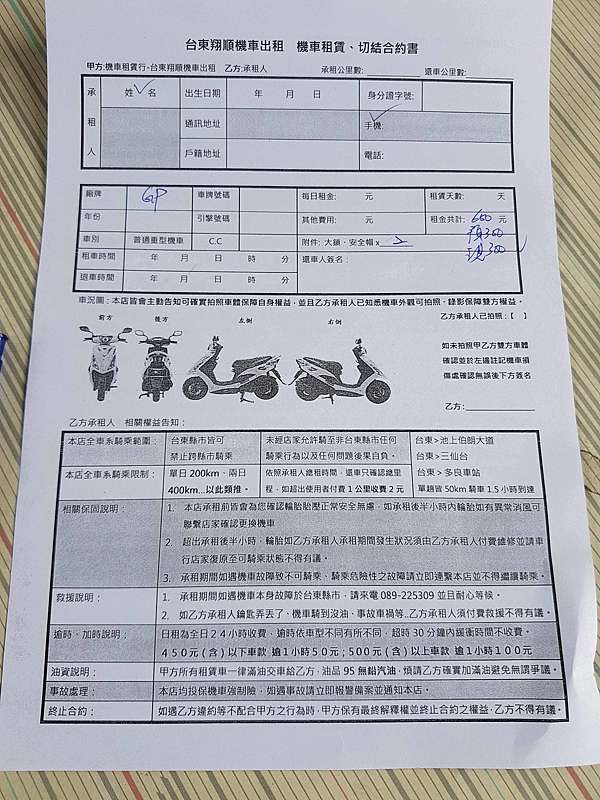 台東翔順機車出租　機車租賃、切結合約書
甲方:機車租賃行-台東翔順機車出租　乙方:承租人　承租公里數:　還車公里數:
承租人　姓　名　出生日期　年　月　日　身分證字號:
通訊地址　手機:
戶籍地址　電話:
廠牌　GP　車牌號碼　每日租金:　元　租賃天數:　天
年份　引擎號碼　其他費用:　元　租金共計: 600 元
預300
車別　普通重型機車　C.C　附件: 大鎖、安全帽 x 2　現300
租車時間　年　月　日　時　分　還車人簽名:
還車時間　年　月　日　時　分
車況圖:本店皆會主動告知可確實拍照車體保障自身權益,並且乙方承租人已知悉機車外觀可拍照、錄影保障雙方權益。
前方　後方　左側　右側　乙方承租人已拍照:【　】
如未拍照甲乙方雙方車體
確認並於左邊註記機車損
傷處確認無誤後下方簽名
乙方:
乙方承租人　相關權益告知:
本店全車系騎乘範圍:　台東縣市皆可　未經店家允許騎至非台東縣市任何　台東>池上伯朗大道
禁止跨縣市騎乘　騎乘行為以及任何問題後果自負。　台東>三仙台
本店全車系騎乘限制:　單日 200km、兩日　依照承租人總租時間,還車只確認總里　台東>多良車站
400km...以此類推。　程,如超出使用者付費 1 公里收費 2 元　單趟皆 50km 騎車 1.5 小時到達
相關保固說明:　1. 本店承租前皆會為您確認輪胎胎壓正常安全無慮,如承租後半小時內輪胎如有異常消風可
聯繫店家確認更換機車
2. 超出承租後半小時,輪胎如乙方承租人承租期間發生狀況須由乙方承租人付費維修並請車
行店家復原至可騎乘狀態不得有議。
3. 承租期間如遇機車故障致不可騎乘、騎乘危險性之故障請立即連繫本店並不得繼續騎乘。
救援說明:　1. 承租期間如遇機車本身故障於台東縣市,請來電 089-225309 並且耐心等候。
2. 如乙方承租人鑰匙弄丟了、機車騎到沒油、事故車禍等..乙方承租人須付費救援不得有議。
逾時、加時說明:　日租為全日24小時收費,逾時依車型不同有所不同,超時30分鐘內緩衝時間不收費。
450元(含)以下車款 逾1小時50元;500元(含)以上車款 逾1小時100元
油資說明:　甲方所有租賃車一律滿油交車給乙方,油品 95 無鉛汽油,煩請乙方確實加滿油避免無謂爭議。
事故處理:　本店均投保機車強制險,如遇事故請立即報警備案並通知本店。
終止合約:　如遇乙方違約等不配合甲方之行為時,甲方保有最終解釋權並終止合約之權益,乙方不得有議。